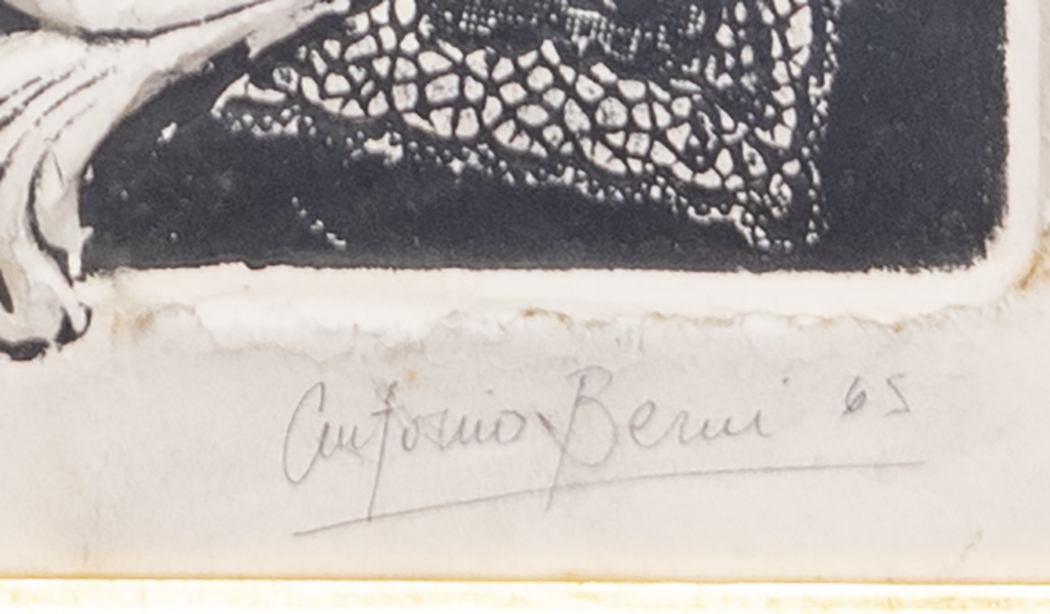 Antonio Berni 65